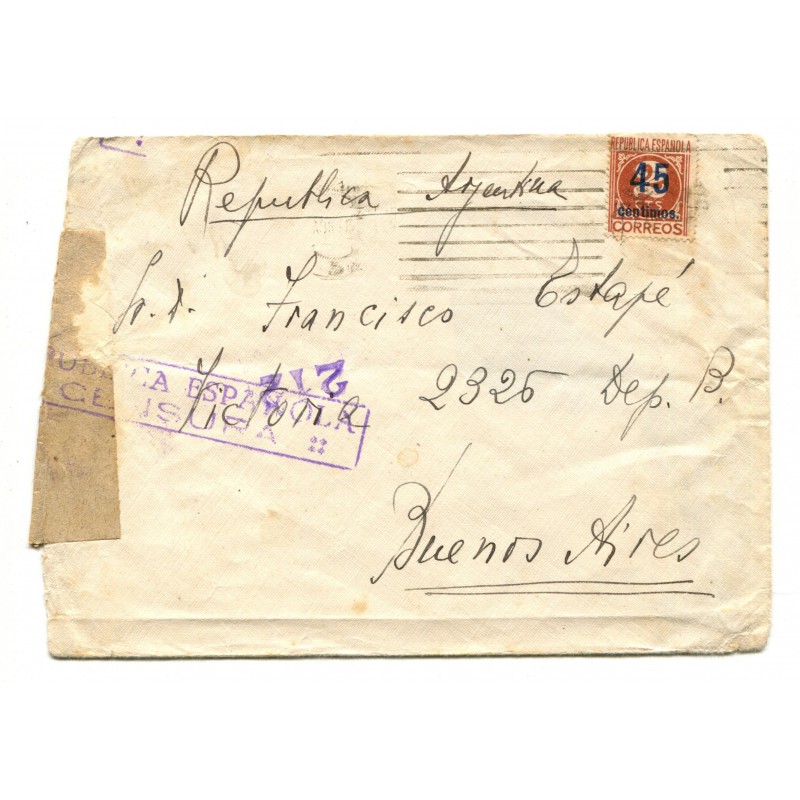 REPUBLICA ESPAÑOLA
45
centimos.
CORREOS
Republica Argentina
Sr. D. Francisco Estapé
Victoria 2325 Dep. B.
Buenos Aires
212
ESPAÑOLA
CENSURA